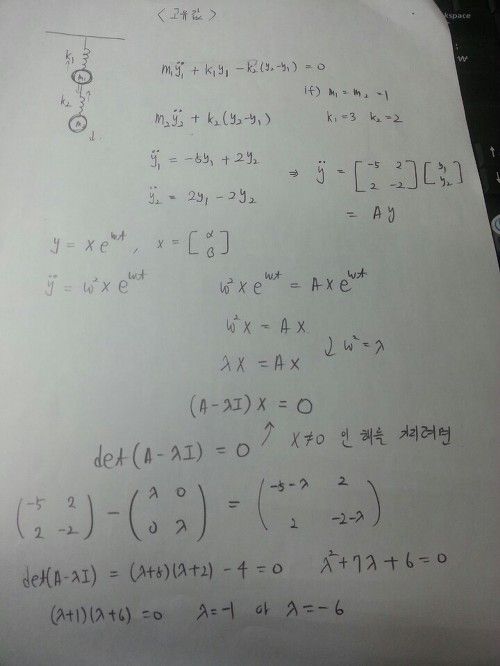 <고유값>
k₁
m₁
k₂
m₁ÿ₁ + k₁y₁ - k₂(y₂-y₁) = 0
if) m₁ = m₂ = 1
m₂ÿ₂ + k₂(y₂-y₁)
k₁=3 k₂=2
ÿ₁ = -5y₁ + 2y₂
ÿ₂ = 2y₁ - 2y₂
⇒ ÿ = [-5 2; 2 -2] [y₁; y₂]
= Ay
y = xe^{wt}, x = [α; β]
ÿ = w²xe^{wt}
w²xe^{wt} = Axe^{wt}
w²x = Ax
↓ w² = λ
λx = Ax
(A-λI)x = 0
↗ x≠0 인 해를 가지려면
det(A-λI) = 0
(-5 2; 2 -2) - (λ 0; 0 λ) = (-5-λ 2; 2 -2-λ)
det(A-λI) = (λ+5)(λ+2) - 4 = 0 λ²+7λ+6=0
(λ+1)(λ+6) = 0 λ=-1 or λ=-6